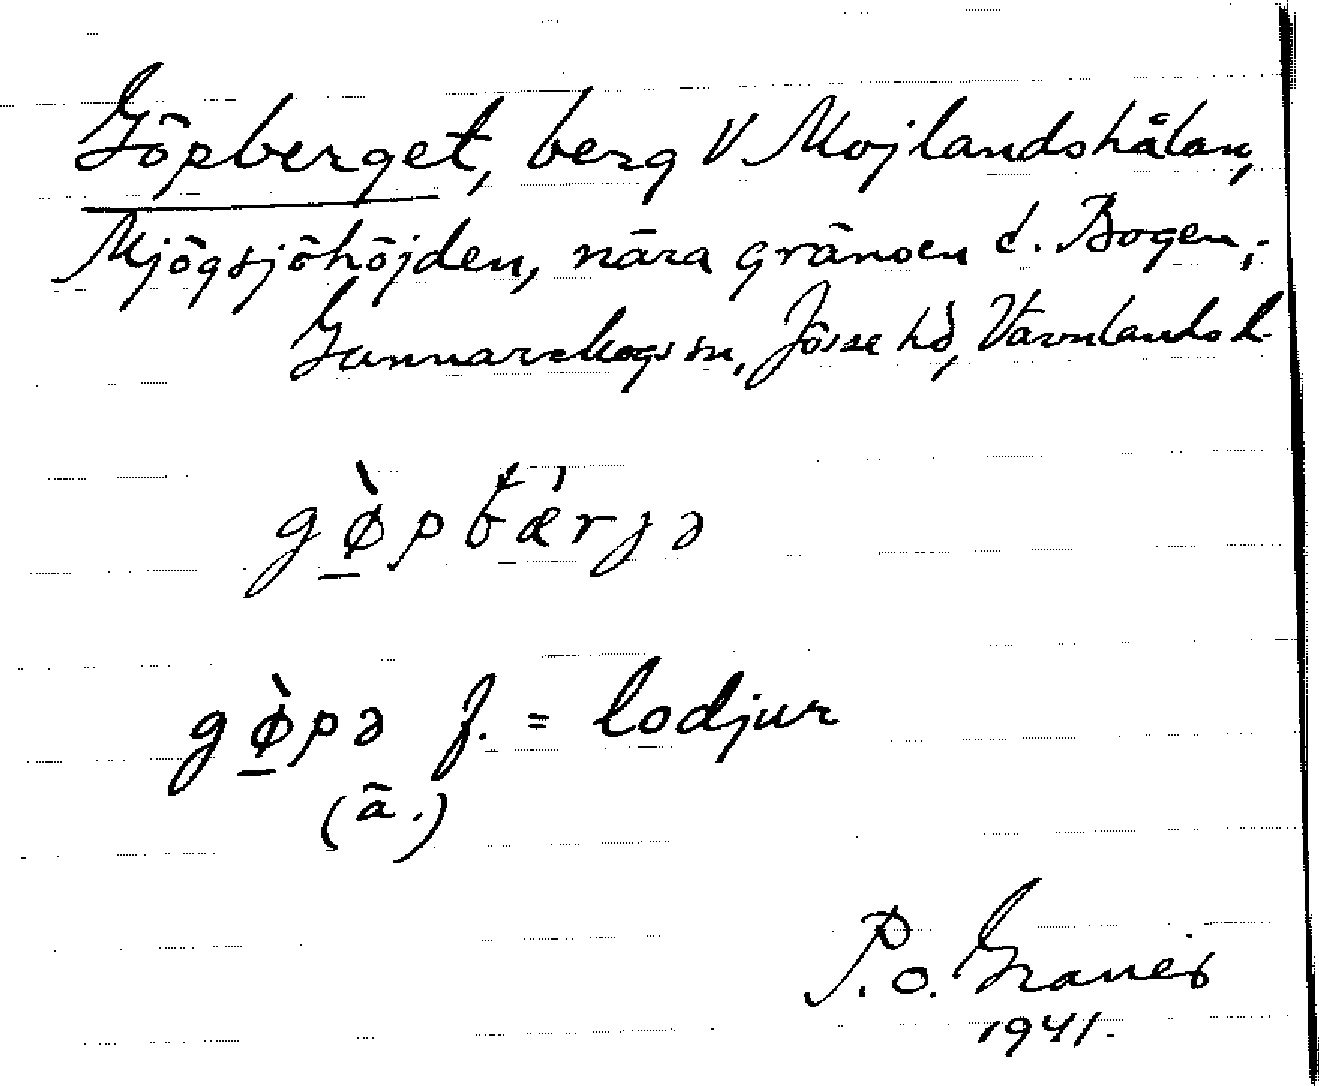 Göpberget, berg V Mojlandshålan,
Mjögsjöhöjden, nära gränsen t. Bogen;
Gunnarskogs sn, Jösse hd, Värmlands l.
gø̀pbærjə
gø̀pə f. = lodjur
(ä.)
P. O. Graner
1941.